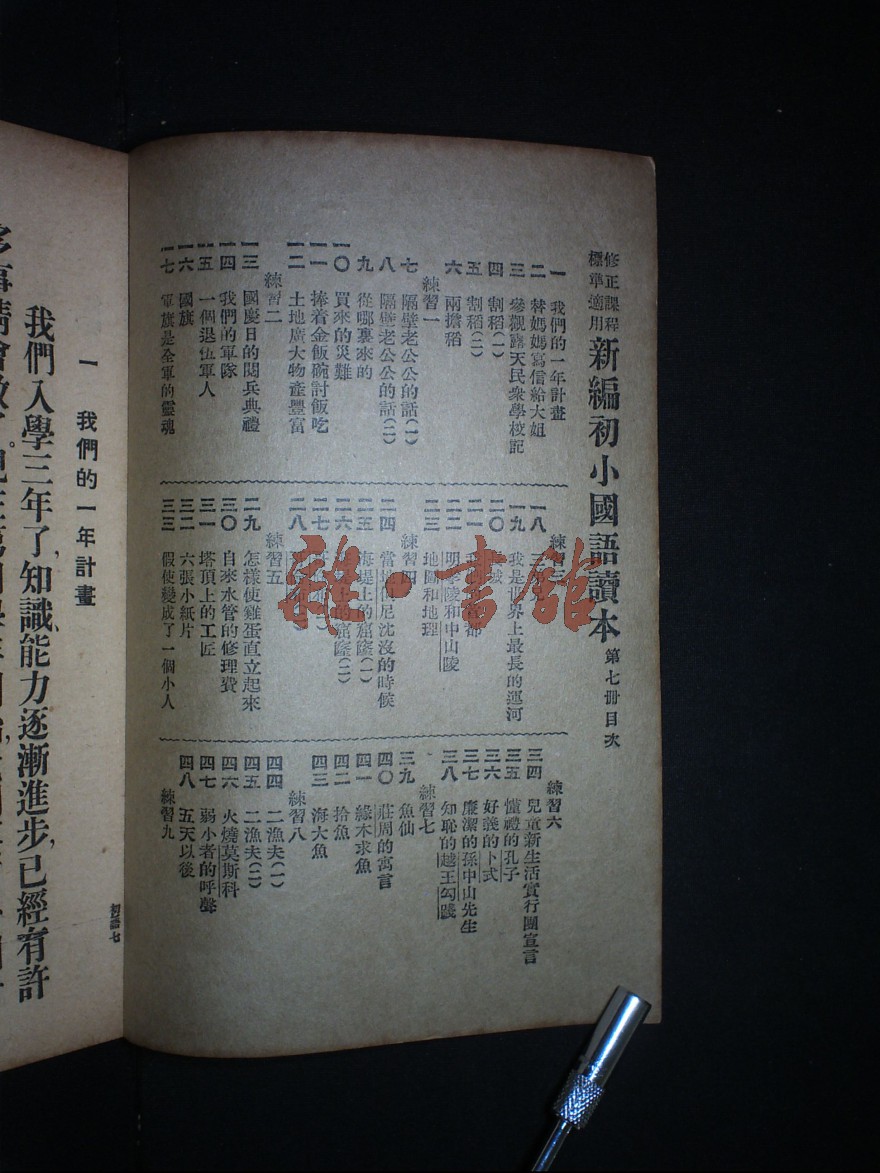 修正課程
標準適用
新編初小國語讀本 第七冊目次
一 我們的一年計畫
二 替媽媽寫信給大姐
三 參觀露天民衆學校記
四 割稻(一)
五 割稻(二)
六 兩擔稻
練習一
七 隔壁老公公的話(一)
八 隔壁老公公的話(二)
九 從哪裏來的
一〇 買來的災難
一一 捧着金飯碗討飯吃
一二 土地廣大物產豐富
練習二
一三 國慶日的閱兵典禮
一四 我們的軍隊
一五 一個退伍軍人
一六 國旗
一七 軍旗是全軍的靈魂
練習三
一八
一九 我是世界上最長的運河
二〇
二一
二二 明孝陵和中山陵
二三 地圖和地理
練習四
二四 當地伯尼沈沒的時候
二五 海堤上的窟窿(一)
二六 海堤上的窟窿(二)
二七
二八
練習五
二九 怎樣使雞蛋直立起來
三〇 自來水管的修理費
三一 塔頂上的工匠
三二 六張小紙片
三三 假使變成了一個小人
練習六
三四 兒童新生活實行團宣言
三五 懂禮的孔子
三六 好義的卜式
三七 廉潔的孫中山先生
三八 知恥的越王勾踐
練習七
三九 魚仙
四〇 莊周的寓言
四一 緣木求魚
四二 拾魚
四三 海大魚
練習八
四四 二漁夫(一)
四五 二漁夫(二)
四六 火燒莫斯科
四七 弱小者的呼聲
四八 五天以後
練習九
雜·書館
初語七
一 我們的一年計畫
我們入學三年了,知識能力逐漸進步,已經有許